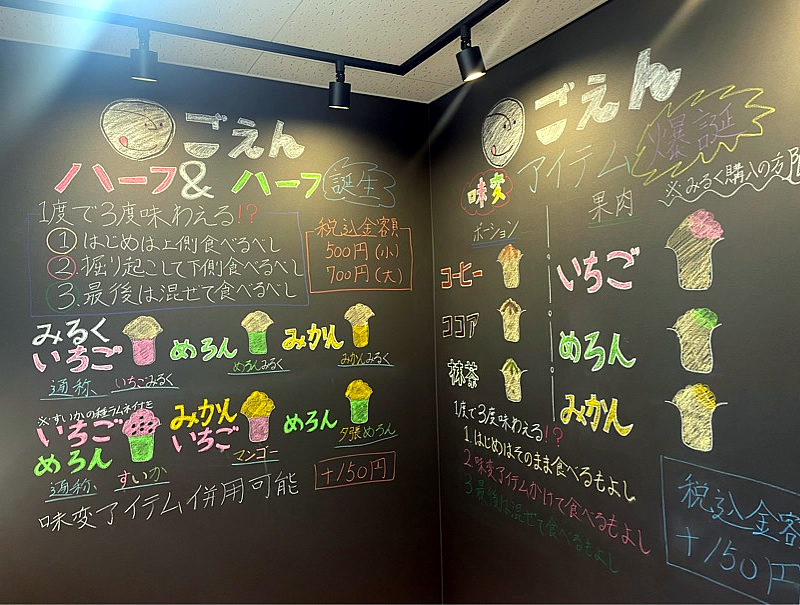 ごえん
ハーフ&ハーフ 誕生
1度で3度味わえる!?
1 はじめは上側食べるべし
2. 掘り起こして下側食べるべし
3. 最後は混ぜて食べるべし
税込金額
500円(小)
700円(大)
みるく
いちご
通称 いちごみるく
めろん
めろんみるく
みかん
みかんみるく
※すいかの種ラムネ付き
いちご
めろん
通称 すいか
みかん
いちご
マンゴー
めろん
夕張めろん
味変アイテム併用可能
+150円
ごえん
味変 アイテム 爆誕
※みるく購入の方限
ポーション
コーヒー
ココア
抹茶
果肉
いちご
めろん
みかん
1度で3度味わえる!?
1 はじめはそのまま食べるもよし
2. 味変アイテムかけて食べるもよし
3 最後は混ぜて食べるもよし
税込金容
+150円